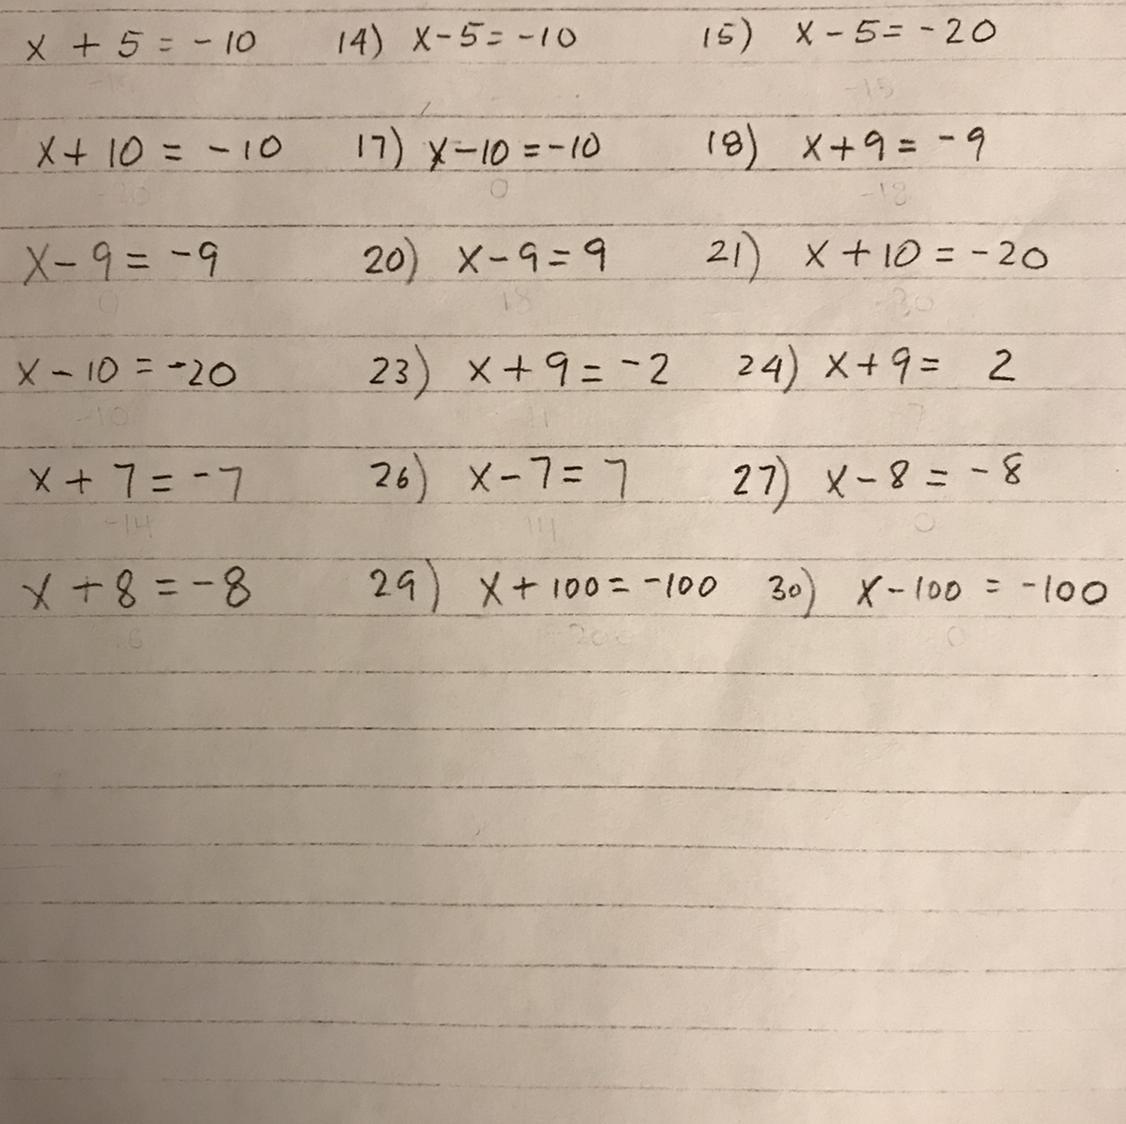 x + 5 = -10 14) x-5 = -10 15) x - 5 = -20
-15
x + 10 = -10 17) x-10 = -10 18) x+9 = -9
-20 0 -18
x - 9 = -9 20) x - 9 = 9 21) x + 10 = -20
0 18 -30
x - 10 = -20 23) x + 9 = -2 24) x + 9 = 2
-10 11 -7
x + 7 = -7 26) x - 7 = 7 27) x - 8 = -8
-14 14 0
x + 8 = -8 29) x + 100 = -100 30) x - 100 = -100
0